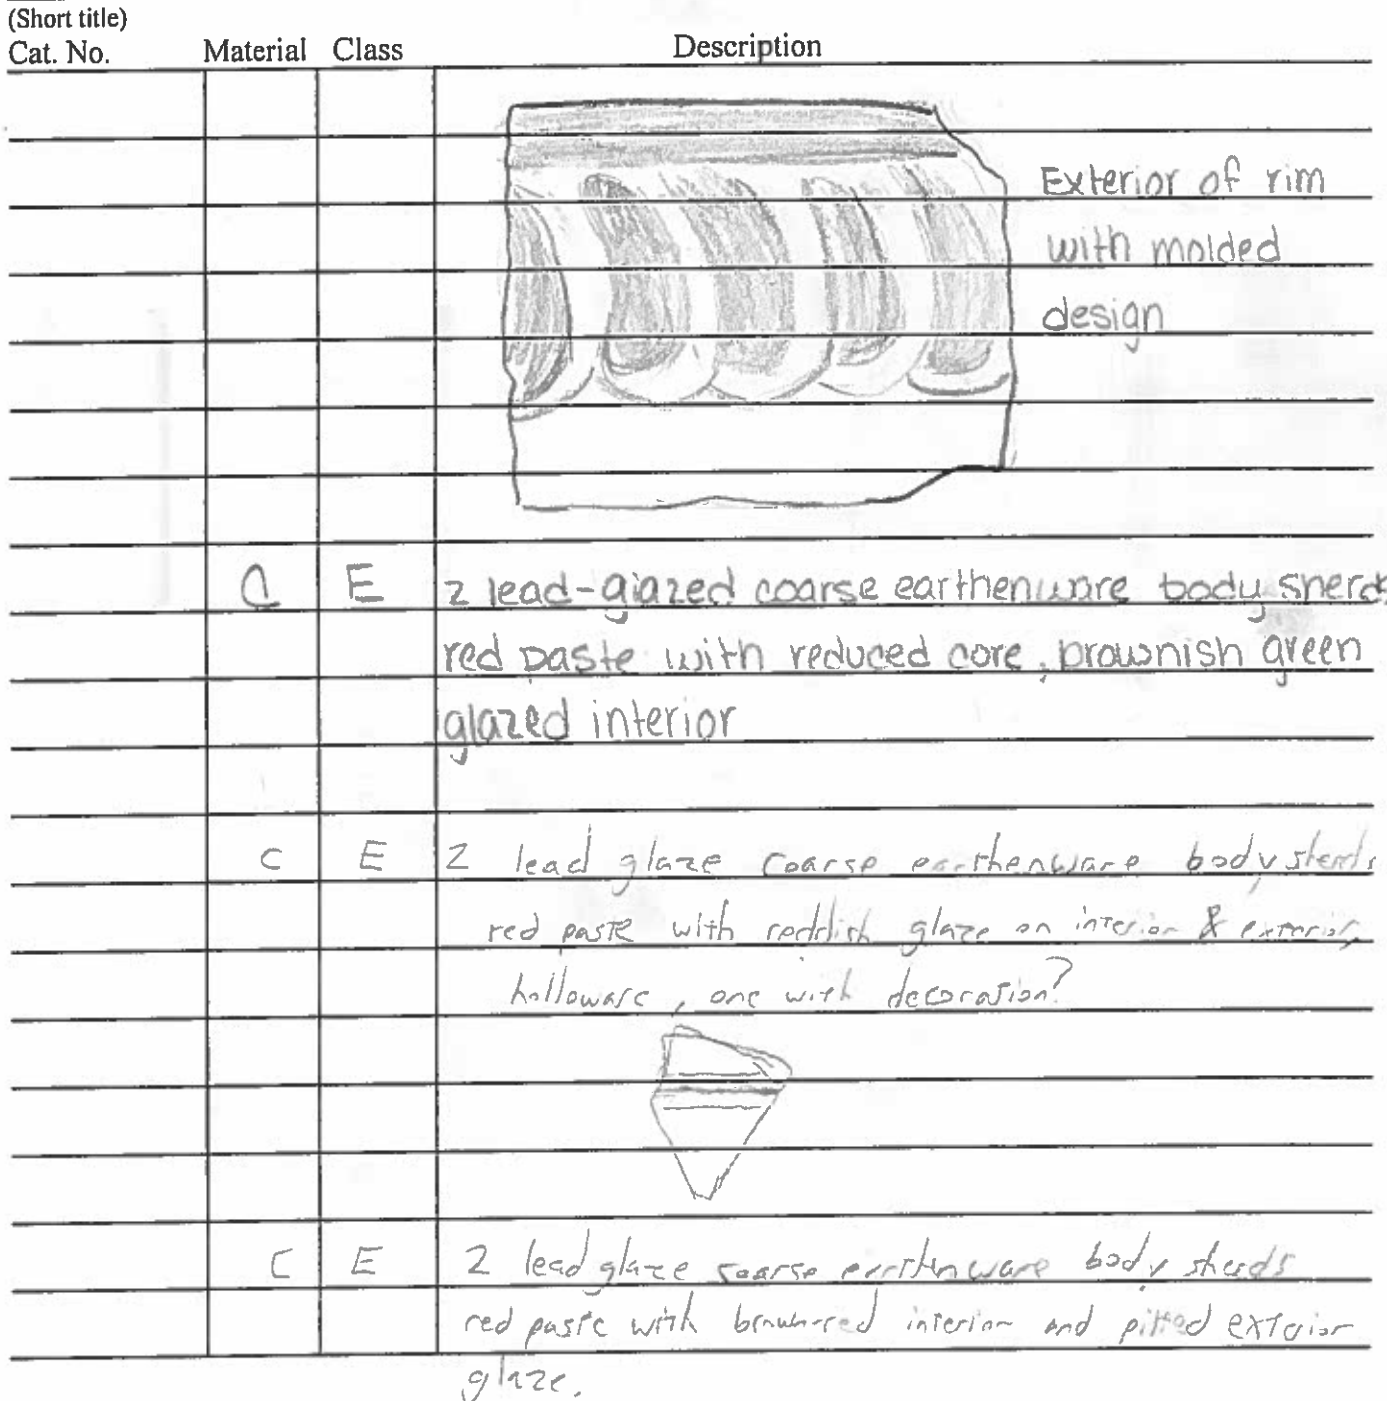 (Short title)
Cat. No. Material Class Description
Exterior of rim
with molded
design
C E 2 lead-glazed coarse earthenware body sherds
red paste with reduced core, brownish green
glazed interior
C E 2 lead glaze coarse earthenware body sherds
red paste with reddish glaze on interior & exterior,
holloware, one with decoration?
C E 2 lead glaze coarse earthenware body sherds
red paste with brown-red interior and pitted exterior
glaze.